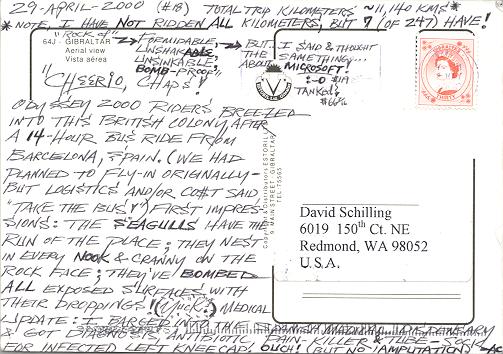 29-APRIL-2000 (#18) TOTAL TRIP KILOMETERS ~11,140 KMS*
*NOTE, I HAVE NOT RIDDEN ALL KILOMETERS, BUT 7 (OF 247) HAVE!
"ROCK of"
64J - GIBRALTAR
Aerial view
Vista aérea
FORMIDABLE,
UNSHAKABLE
UNSINKABLE,
BOMB-PROOF,
BUT... I SAID & THOUGHT
THE SAME THING...
ABOUT MICROSOFT!
:-O $119
TANKED
$66 5/8
"CHEERIO, CHAPS!"
ODYSSEY 2000 RIDERS BREEZED
INTO THIS BRITISH COLONY, AFTER
A 14-HOUR BUS RIDE FROM
BARCELONA, SPAIN. (WE HAD
PLANNED TO FLY-IN ORIGINALLY-
BUT LOGISTICS AND/OR CO$T SAID
"TAKE THE BUS!") FIRST IMPRES-
SIONS: THE SEAGULLS HAVE THE
RUN OF THE PLACE; THEY NEST
IN EVERY NOOK & CRANNY ON THE
ROCK FACE; THEY'VE BOMBED
ALL EXPOSED SURFACES WITH
THEIR DROPPINGS! (YUCK!) MEDICAL
UPDATE: I BARGED IN
& GOT DIAGNOSIS, ANTIBIOTIC, PAIN-KILLER & TUBE-SOCK
FOR INFECTED LEFT KNEECAP. OUCH! (BUT NO AMPUTATION)
ESTORIL
9 MAIN STREET, GIBRALTAR
TEL: 75565
THIRTY
David Schilling
6019 150th Ct. NE
Redmond, WA 98052
U.S.A.